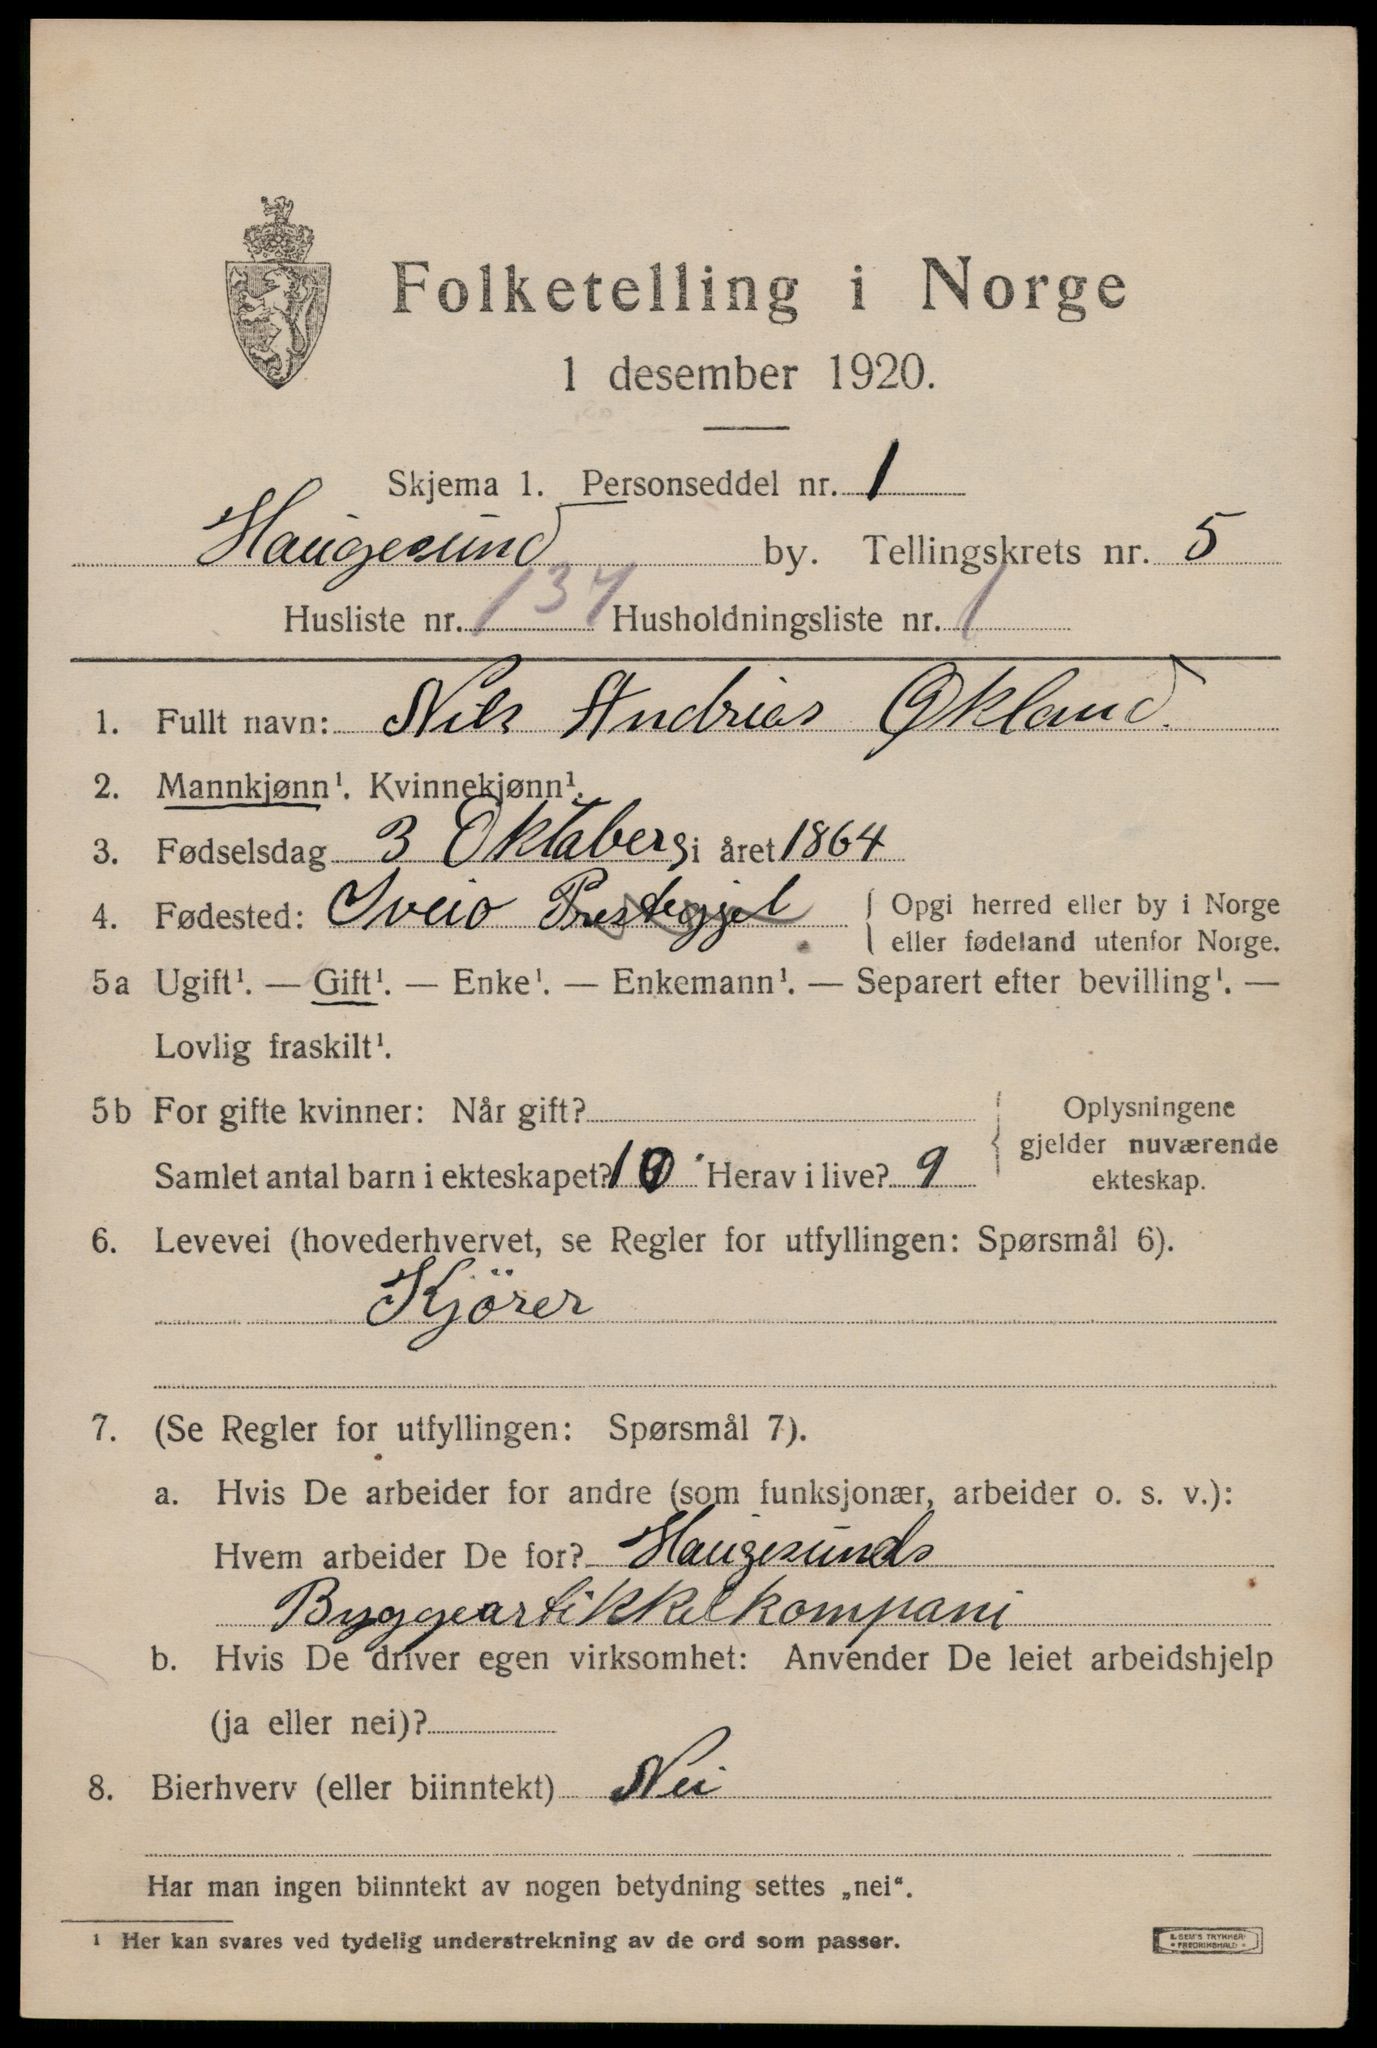 Folketelling i Norge
1 desember 1920.
Skjema 1. Personseddel nr. 1
Haugesund by. Tellingskrets nr. 5
Husliste nr. 137 Husholdningsliste nr. 1
1. Fullt navn: Nils Andrias Økland
2. Mannkjønn¹. Kvinnekjønn¹.
3. Fødselsdag 3 Oktaber i året 1864
4. Fødested: Sveio Prestegjel { Opgi herred eller by i Norge
eller fødeland utenfor Norge.
5a Ugift¹. — Gift¹. — Enke¹. — Enkemann¹. — Separert efter bevilling¹. —
Lovlig fraskilt¹.
5b For gifte kvinner: Når gift? { Oplysningene
gjelder nuværende
Samlet antal barn i ekteskapet? 10 Herav i live? 9 ekteskap.
6. Levevei (hovederhvervet, se Regler for utfyllingen: Spørsmål 6).
Kjörer
7. (Se Regler for utfyllingen: Spørsmål 7).
a. Hvis De arbeider for andre (som funksjonær, arbeider o. s. v.):
Hvem arbeider De for? Haugesunds
Byggeartikkelkompani
b. Hvis De driver egen virksomhet: Anvender De leiet arbeidshjelp
(ja eller nei)?
8. Bierhverv (eller biinntekt) Nei
Har man ingen biinntekt av nogen betydning settes „nei“.
¹ Her kan svares ved tydelig understrekning av de ord som passer.
E. SEM'S TRYKKERI
• FREDRIKSHALD •